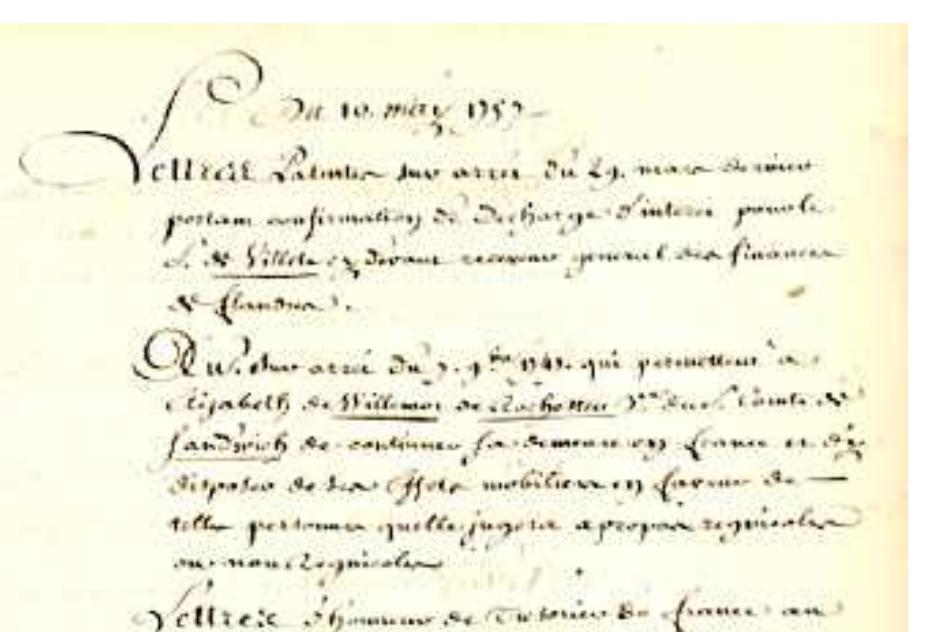 Du 10. may 1757
Lettres Patentes sur arret du 29. mars dernier
portant confirmation de Decharge d'interet pour le
S. de Villete cy devant receveur general des finances
de flandres.
sur arret du 7. 9bre 1747. qui permettent a
Elizabeth de Willemot de Rochester du Comte de
Sandwich de continuer sa demeure en france et d'y
disposer de ses Effets mobiliers en faveur de
telle personne quelle jugera a propos regnicoles
ou non Regnicoles
Lettres d'honneur de Tresorier de france au